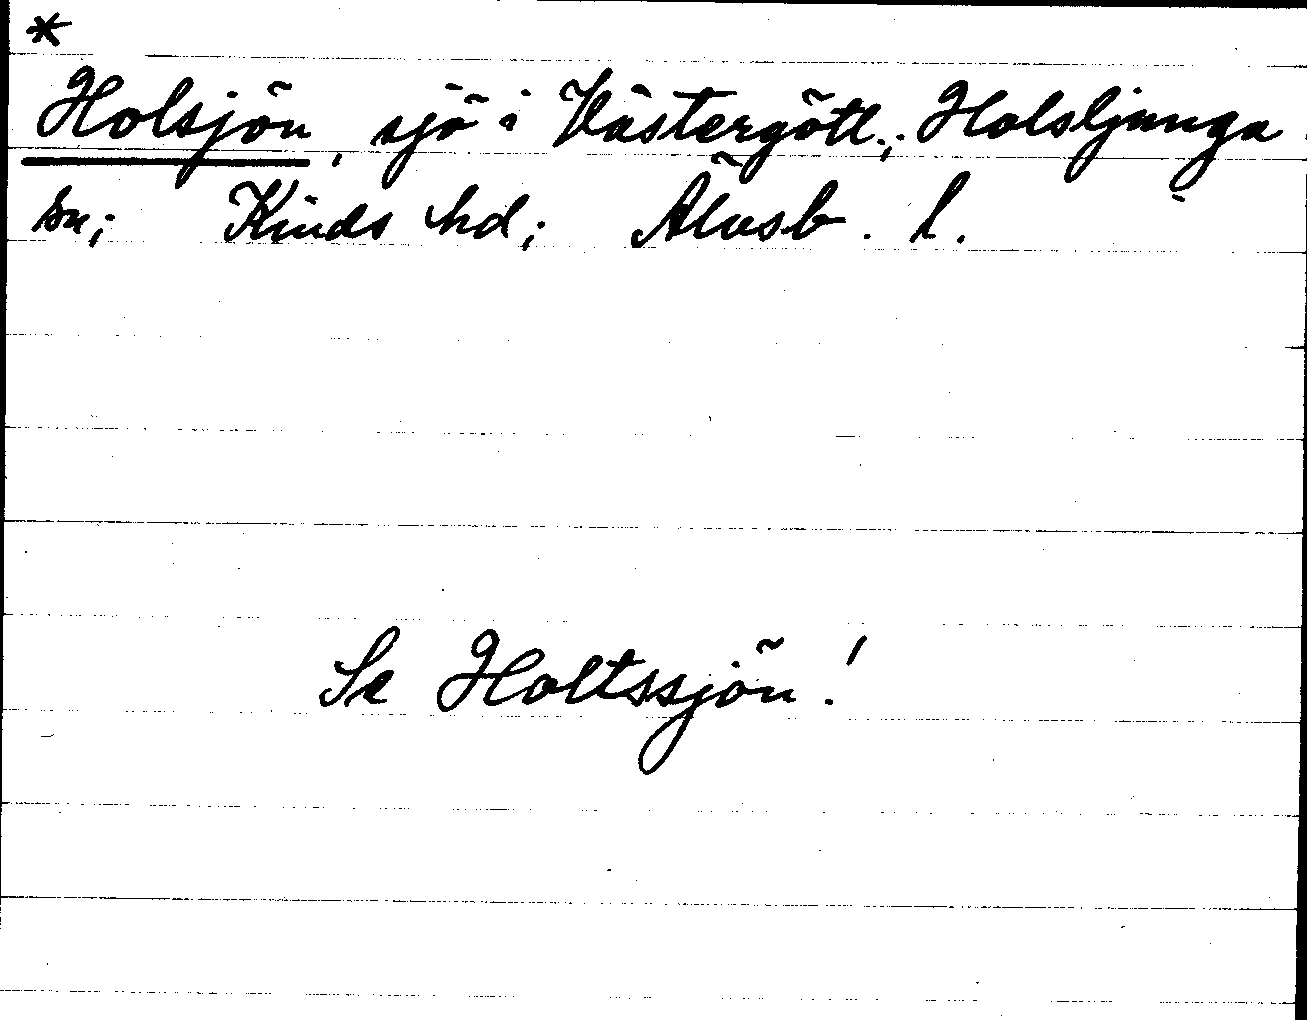 *
Holsjön, sjö i Västergötl.; Holsljunga
sn; Kinds hd; Älvsb. l.
Se Holtssjön!